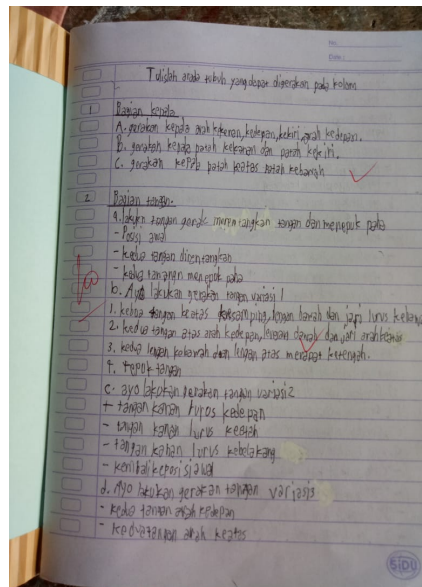 No:
Date:
Tulislah anda tubuh yang dapat digerakan pada kolom
1 Bagian kepala
A. gerakan kepala arah kekanan, kedepan, kekiri, arah kedepan.
B. gerakan kepala patah kekanan dan patah kekiri.
C. gerakan kepala patah keatas patah kebawah
2 Bagian tangan.
a. lakukan tangan gerak merentangkan tangan dan menepuk paha
- Posisi awal
- kedua tangan direntangkan
- kedua tanangn menepuk paha
b. Ayo lakukan gerakan tangan variasi 1
1. kedua tangan keatas kesamping, lengan bawah dan jari lurus kebawah
2. kedua tangan atas arah kedepan, lengan dan jari arah keatas
3. kedua lengan kebawah dan lengan atas merapat ketengah.
4. tepuk tangan
c. ayo lakukan gerakan tangan variasi 2
+ tangan kanan lurus kedepan
- tangan kanan lurus keatah
- tangan kanan lurus kebelakang
- kembali keposisi awal
d. Ayo lakukan gerakan tangan variasi 3
- kedua tangan arah kedepan
- kedua tangan arah keatas
SIDU